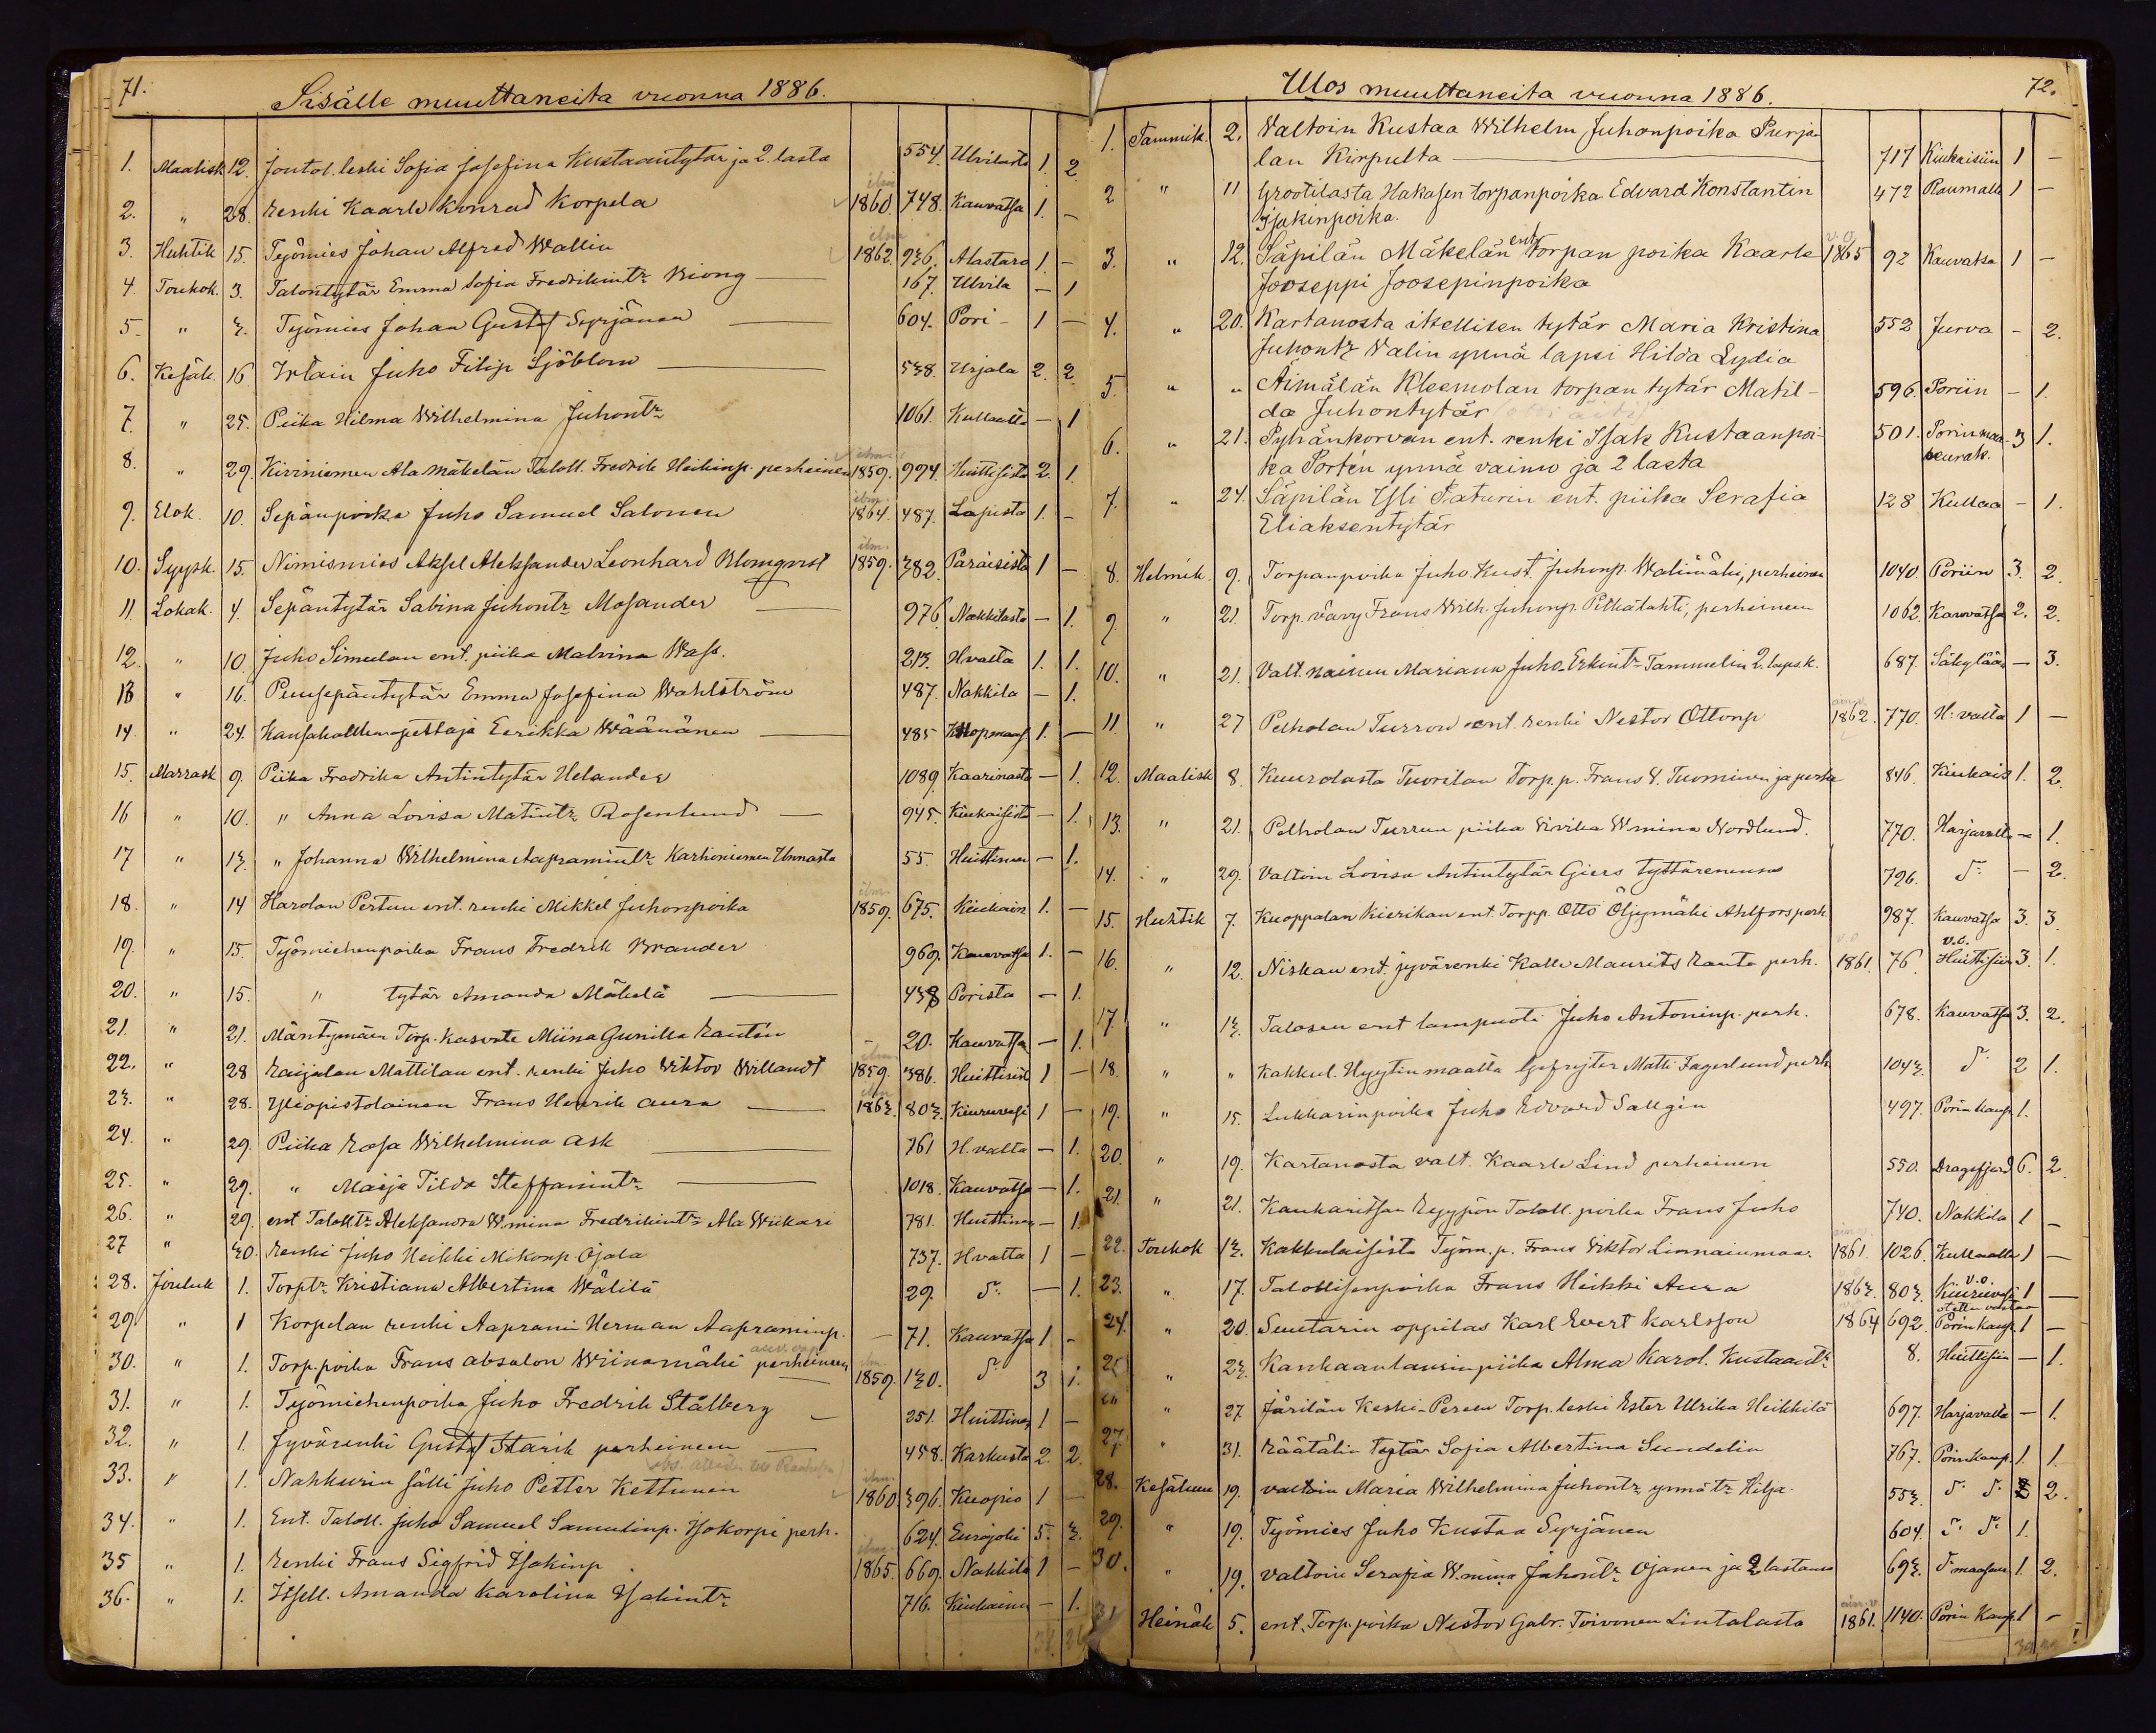 71.
Sisälle muuttaneita vuonna 1886.
1. Maalisk 12. Joutol. leski Sofia Josefina Kustaantytär ja 2. lasta 554. Ulvilasta 1. 2.
2. " 28. Renki Kaarle Konrad Korpela ilm. 1860. 748. Kauvatsa 1. -
3. Huhtik 15. Työmies Johan Alfred Wallin ilm 1862. 936. Alastaro 1. -
4. Toukok. 3. Talontytär Emma Sofia Fredrikintr Kiong 167. Ulvila - 1
5. " 3. Työmies Johan Gustaf Syrjänen 604. Pori 1 -
6. Kesäk. 16. Itälain Juho Filip Sjöblom 538. Urjala 2. 2.
7. " 25. Piika Hilma Wilhelmina Juhontr 1061. Kullaalta - 1
8. " 29. Kiviniemen Ala Mäkelän Taloll. Fredrik Heikinp. perheineen 1859. 994. Huittisista 2. 1.
9. Elok. 10. Sepänpoika Juho Samuel Salonen ilm. 1864. 487. Lapista 1. -
10. Syysk. 15. Nimismies Aksel Aleksander Leonhard Blomqvist ilm. 1859. 382. Paraisista 1 -
11. Lokak. 4. Sepäntytär Sabina Juhontr Mosander 976. Nakkilasta - 1.
12. " 10. Juho Simulan ent. piika Malvina Wass. 213. H.valta 1. 1.
13 " 16. Puusepäntytär Emma Josefina Wahlström 487. Nakkila - 1.
14. " 24. Kansakoulunopettaja Eerikka Wäänänen 485 1. -
15. Marrask 9. Piika Fredrika Antintytär Helander 1089. Kaarinasta - 1.
16 " 10. " Anna Lovisa Matintr Rosenlund 945. Kiukaisista - 1.
17 " 13. " Johanna Wilhelmina Aapramintr Karhiniemen Unnasta 55. Huittinen - 1.
18. " 14 Harolan Pertun ent. renki Mikkel Juhonpoika ilm. 1859. 675. Kiukain 1. -
19. " 15. Työmiehenpoika Frans Fredrik Brander 969. Kauvatsa 1. -
20. " 15. " tytär Amanda Mäkelä 438 Porista - 1.
21. " 21. Mäntymäen Torp. kasvate Miina Gunilla Rantin 20. Kauvatsa - 1.
22. " 28 Raijalan Mattilan ent. renki Juho Viktor Willandt ilm. 1859. 386. Huittisist 1 -
23. " 28. Yliopistolainen Frans Henrik Aura 1863. 803. Kiuruvesi 1 -
24. " 29. Piika Rosa Wilhelmina Ask 761 H.valta - 1.
25. " 29. " Maija Tilda Steffanintr 1018. Kauvatsa - 1.
26. " 29. ent Talolltr Aleksandra W.mina Fredrikintr Ala Wiikari 781. Huittinen - 1.
27 " 30. Renki Juho Heikki Mikonp Ojala 737. H.valta 1 -
28. Jouluk 1. Torptr Kristiana Albertina Wälilä 29. d:o - 1.
29. " 1 Korpelan renki Aaprami Herman Aapraminp. - 71. Kauvatsa 1 -
30. " 1. Torp. poika Frans Absalon Wiinamäki perheineen ilm. 1859. 130. d:o 3 1.
31. " 1. Työmiehenpoika Juho Fredrik Stålberg 251. Huittinen 1 -
32. " 1. Jyvärenki Gustaf Starik perheineen 458. Karkusta 2. 2.
33. " 1. Nahkurin sälli Juho Petter Kettunen ilm. 1860 396. Kuopio 1 -
34. " 1. Ent. Taloll. Juho Samuel Samulinp. Isokorpi perh. 624. Eurajoki 5. 3.
35 " 1. Renki Frans Sigfrid Isakinp. ilm. 1865. 669. Nakkila 1 -
36. " 1. Itsell. Amanda Karolina Isakintr 716. Kiukainen - 1.
72.
Ulos muuttaneita vuonna 1886.
1. Tammik. 2. Valtoin Kustaa Wilhelm Juhonpoika Purja-
lan Kirpulta 717 Kiukaisiin 1 -
2 " 11 Grootilasta Hakasen torpanpoika Edvard Konstantin 472 Raumalle 1 -
Isakinpoika.
3. " 12. Säpilän Mäkelän ent. torpan poika Kaarle v.o. 1865 92 Kauvatsa 1 -
Jooseppi Joosepinpoika
4. " 20. Kartanosta itsellisen tytär Maria Kristina 552 Jurva - 2.
Juhontr Valin ynnä lapsi Hilda Lydia
5. " " Äimälän Kleemolan torpan tytär Matil- 596. Poriin - 1.
da Juhontytär
6. " 21. Pyhänkorvan ent. renki Isak Kustaanpoi- 501. Porinmaaseurak. 3 1.
ka Portén ynnä vaimo ja 2 lasta
7. " 24. Säpilän Yli Saturin ent. piika Serafia 128 Kullaa - 1.
Eliaksentytär
8. Helmik. 9. Torpanpoika Juho Kust. Juhonp. Walimäki, perheineen 1040. Poriin 3. 2.
9. " 21. Torp. vävy Frans Wilh. Juhonp. Pitkälahti, perheineen 1062. Kauvatsa 2. 2.
10. " 21. Valt. nainen Mariana Juho-Erkintr Tammelin 2. laps.k. 687. Säkylään - 3.
11. " 27 Pelholan Turron ent. renki Nestor Ottonp 1862. 770. H:valta 1 -
12. Maalisk 8. Kuurolasta Tuorilan Torp. p. Frans V. Tuominen ja perhe 846. Kiukais 1. 2.
13. " 21. Pelholan Turrun piika Viviika W.mina Nordlund. 770. Harjavalta - 1.
14. " 29. Valtoin Lovisa Antintytär Giers tyttärenensa 796. d:o - 2.
15. Huhtik 7. Kuoppalan Kierikan ent. Torpp. Otto Öljymäki Ahlfors perh. 987. Kauvatsa 3. 3.
16. " 12. Niskan ent. jyvärenki Kalle Maurits Ranta perh. v.o 1861. 76. v.o. Huittisiin 3. 1.
17. " 13. Talosen ent lampuoti Juho Antoninp. perh. 678. Kauvatsa 3. 2.
18. " " Kakkul. Hyytin maalta Gefrejter Matti Fagerlund perh. 1043. d:o 2 1.
19. " 15. Lukkarinpoika Juho Edvard Sallgin 497. Porin kaup 1.
20. " 19. Kartanosta valt. Kaarle Lind perheineen 550. Dragsfjerd 6. 2
21. " 21. Kankaritsan Ryypön Taloll. poika Frans Juho 740. Nakkila 1 -
22. Toukok 13. Kakkulaisista Työm. p. Frans Viktor Linnainmaa. 1861. 1026. Kullaalle 1 -
23. " 17. Talollisenpoika Frans Heikki Aura 1863. 803. v.o. Kiuruvesi 1 -
24. " 20. Suutarin oppilas Karl Evert Karlsson 1864 692. Porin kaup. 1 -
25. " 23. Kankaanlaurin piika Alma Karol. Kustaantr 8. Huittisiin - 1.
" 27. Järilän Keski-Pereen Torp. leski Ester Ulrika Heikkilä 697. Harjavalta - 1.
27. " 31. Räätälin tytär Sofia Albertina Sundelin 767. Porin kaup. 1. 1.
28. Kesäkuu 19. valtoin Maria Wilhelmina Juhontr ynnä tr Hilja. 553. d:o d:o 2.
29. " 19. Työmies Juho Kustaa Syrjänen 604. d:o d:o 1.
30. " 19. valtoin Serafia W.mina Juhontr Ojanen ja 2 lastansa 693. d:o maaseur. 1. 2.
31 Heinäk 5. ent. Torp. poika Nestor Gabr. Toivonen Lintalasta 1861. 1140. Porin Kaup. 1 -